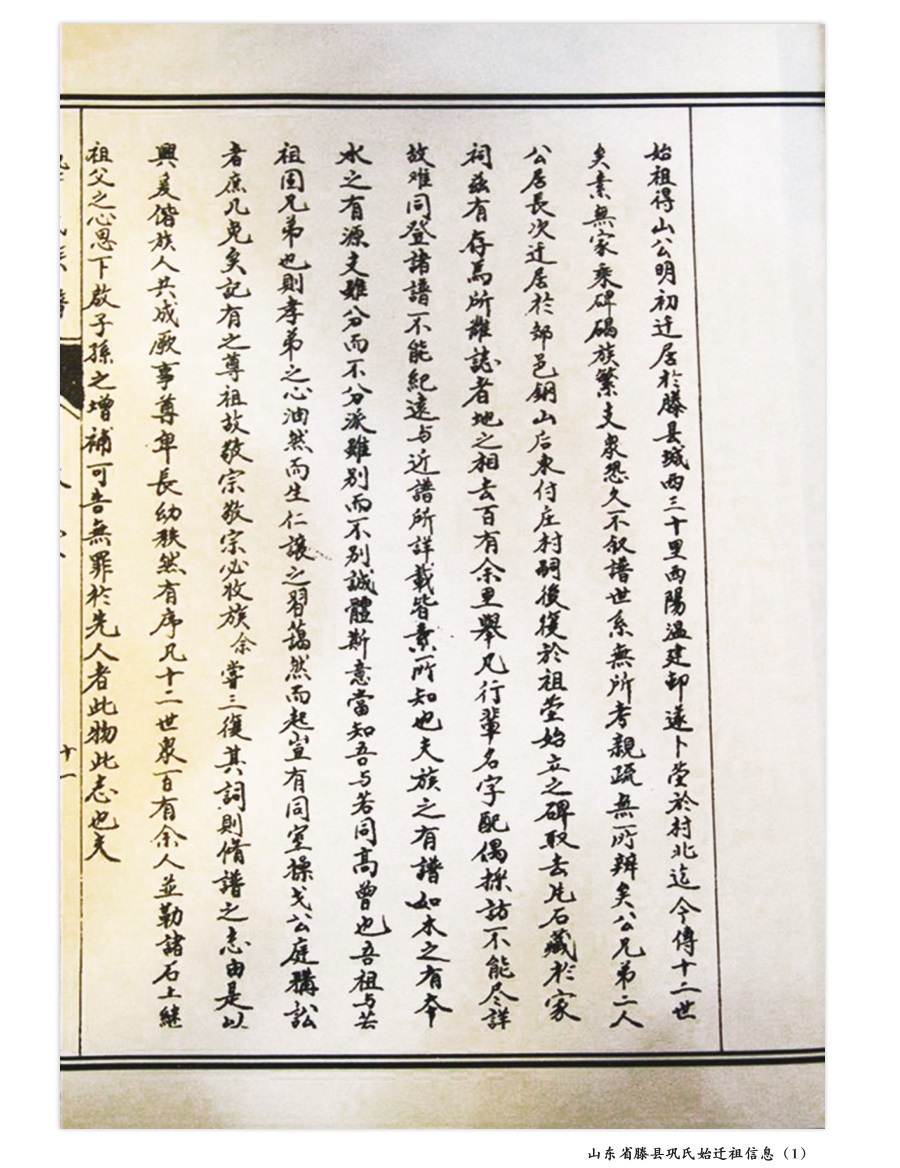 始祖得山公明初迁居於滕县城西三十里西阳温建却遂卜茔於村北迄今傳十二世
矣素無家乘碑碣族繁支衆恐久不叙譜世系無所考親疏無所辨矣公兄弟二人
公居長次迁居於邹邑鋼山后東付庄村嗣後復於祖茔始立之碑取去片石藏於家
祠兹有存焉所難誌者地之相去百有余里舉凡行輩名字配偶採訪不能尽詳
故难同登諸譜不能紀遠与近譜所詳載皆素所知也夫族之有譜如木之有本
水之有源支雖分而不分派雖别而不别誠體斯意當知吾与若同高曾也吾祖与若
祖固兄弟也則孝弟之心油然而生仁讓之習藹然而起豈有同室操戈公庭構訟
者庶几免矣記有之尊祖故敬宗敬宗必收族余嘗三復其詞則脩譜之志由是以
興爰偕族人共成厥事尊卑長幼秩然有序凡十二世衆百有余人並勒諸石上継
祖父之心思下啟子孫之增補可告無罪於先人者此物此志也夫
十一
山东省滕县巩氏始迁祖信息（1）